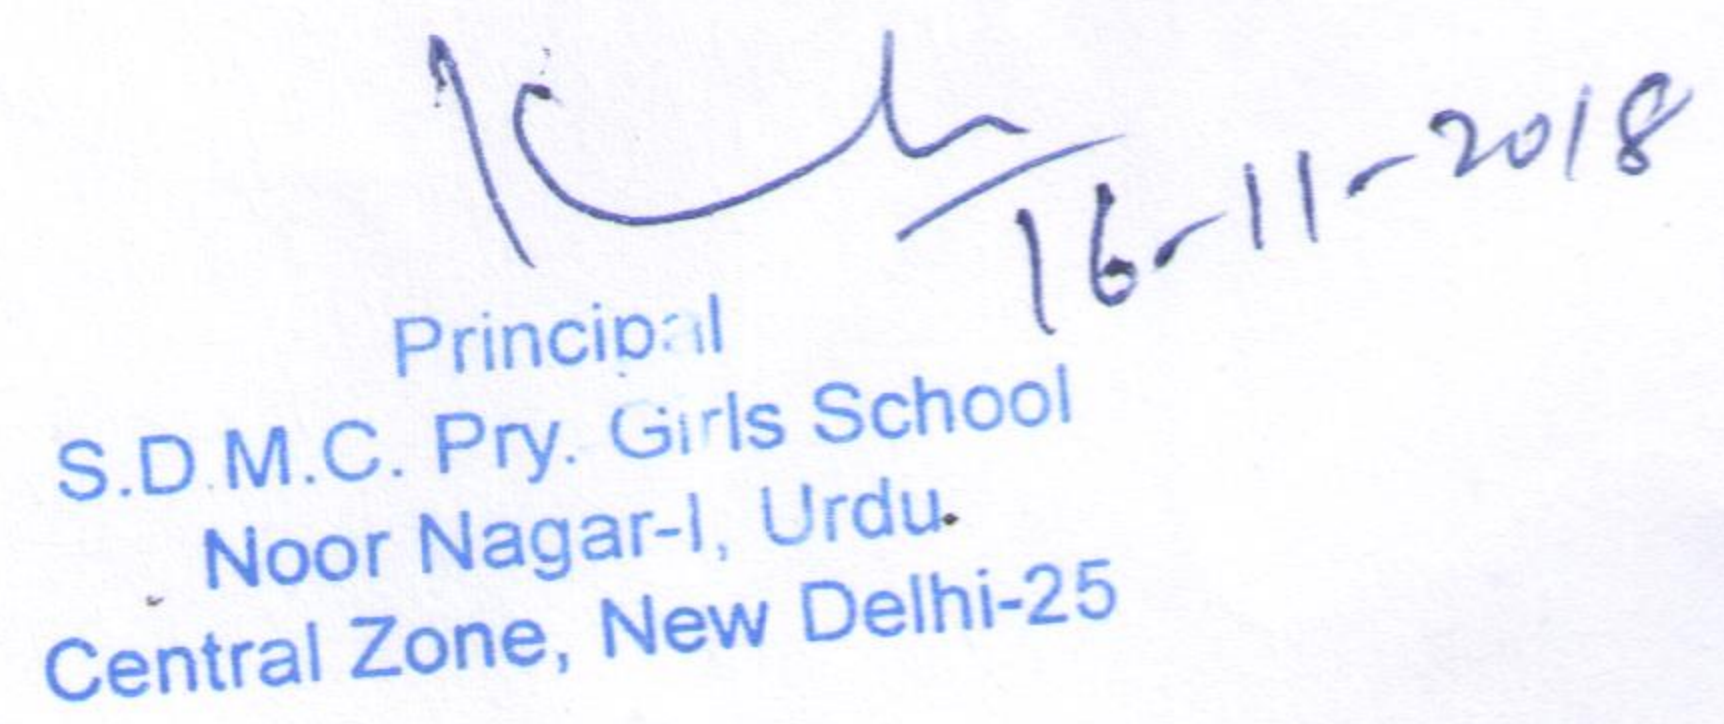 16-11-2018
Principal
S.D.M.C. Pry. Girls School
Noor Nagar-I, Urdu
Central Zone, New Delhi-25